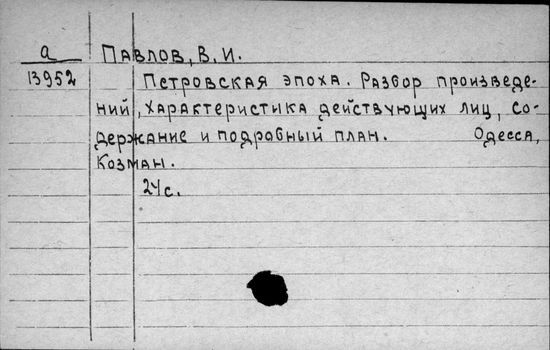 а Павлов, В. И.
13952 Петровская эпоха. Разбор произведе-
ний, характеристика действующих лиц, со-
держание и подробный план. Одесса,
Козман.
24 с.